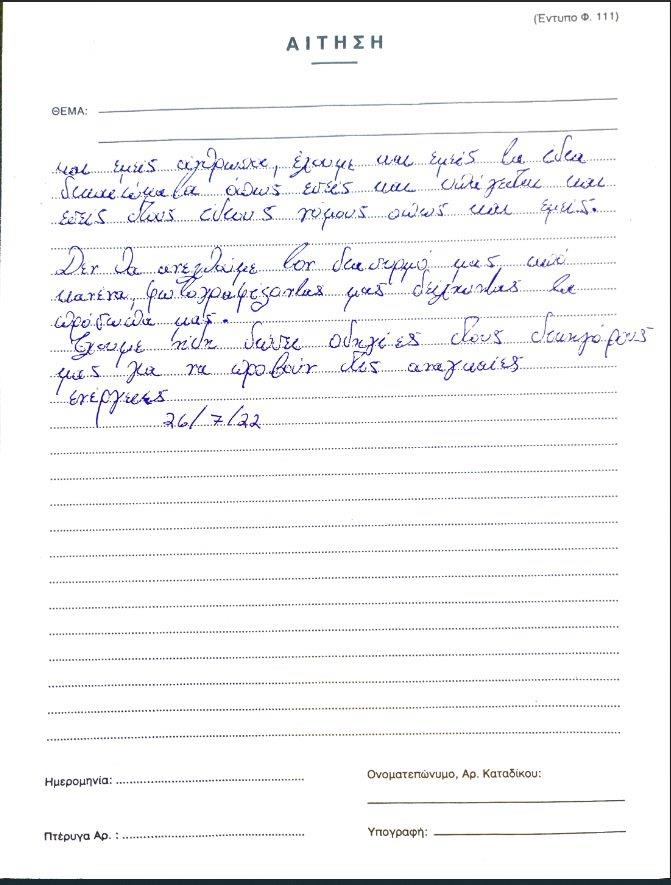 (Έντυπο Φ. 111)
ΑΙΤΗΣΗ
ΘΕΜΑ:
και εμείς άνθρωποι, έχουμε και εμείς τα ίδια
δικαιώματα όπως εσείς και υπάγεστε και
εσείς στους ίδιους νόμους όπως και εμείς.
Δεν θα ανεχθούμε τον διασυρμό μας από
κανένα, φωτογραφίζοντας μας δείχνοντας τα
πρόσωπα μας.
Έχουμε ήδη δώσει οδηγίες στους δικηγόρους
μας για να προβούν στις αναγκαίες
ενέργειες
26/7/22
Ημερομηνία:
Ονοματεπώνυμο, Αρ. Καταδίκου:
Πτέρυγα Αρ. :
Υπογραφή: